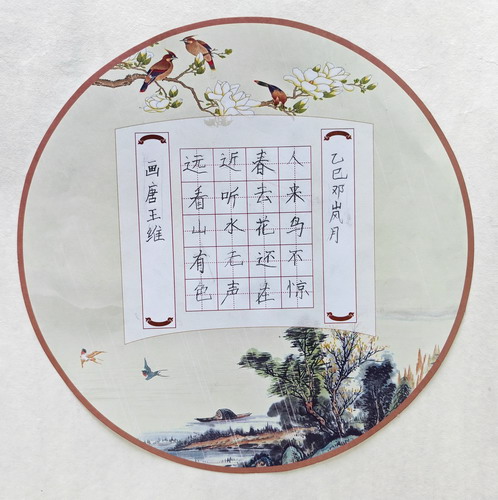 画唐王维
远看山有色
近听水无声
春去花还在
人来鸟不惊
乙巳邓岚月